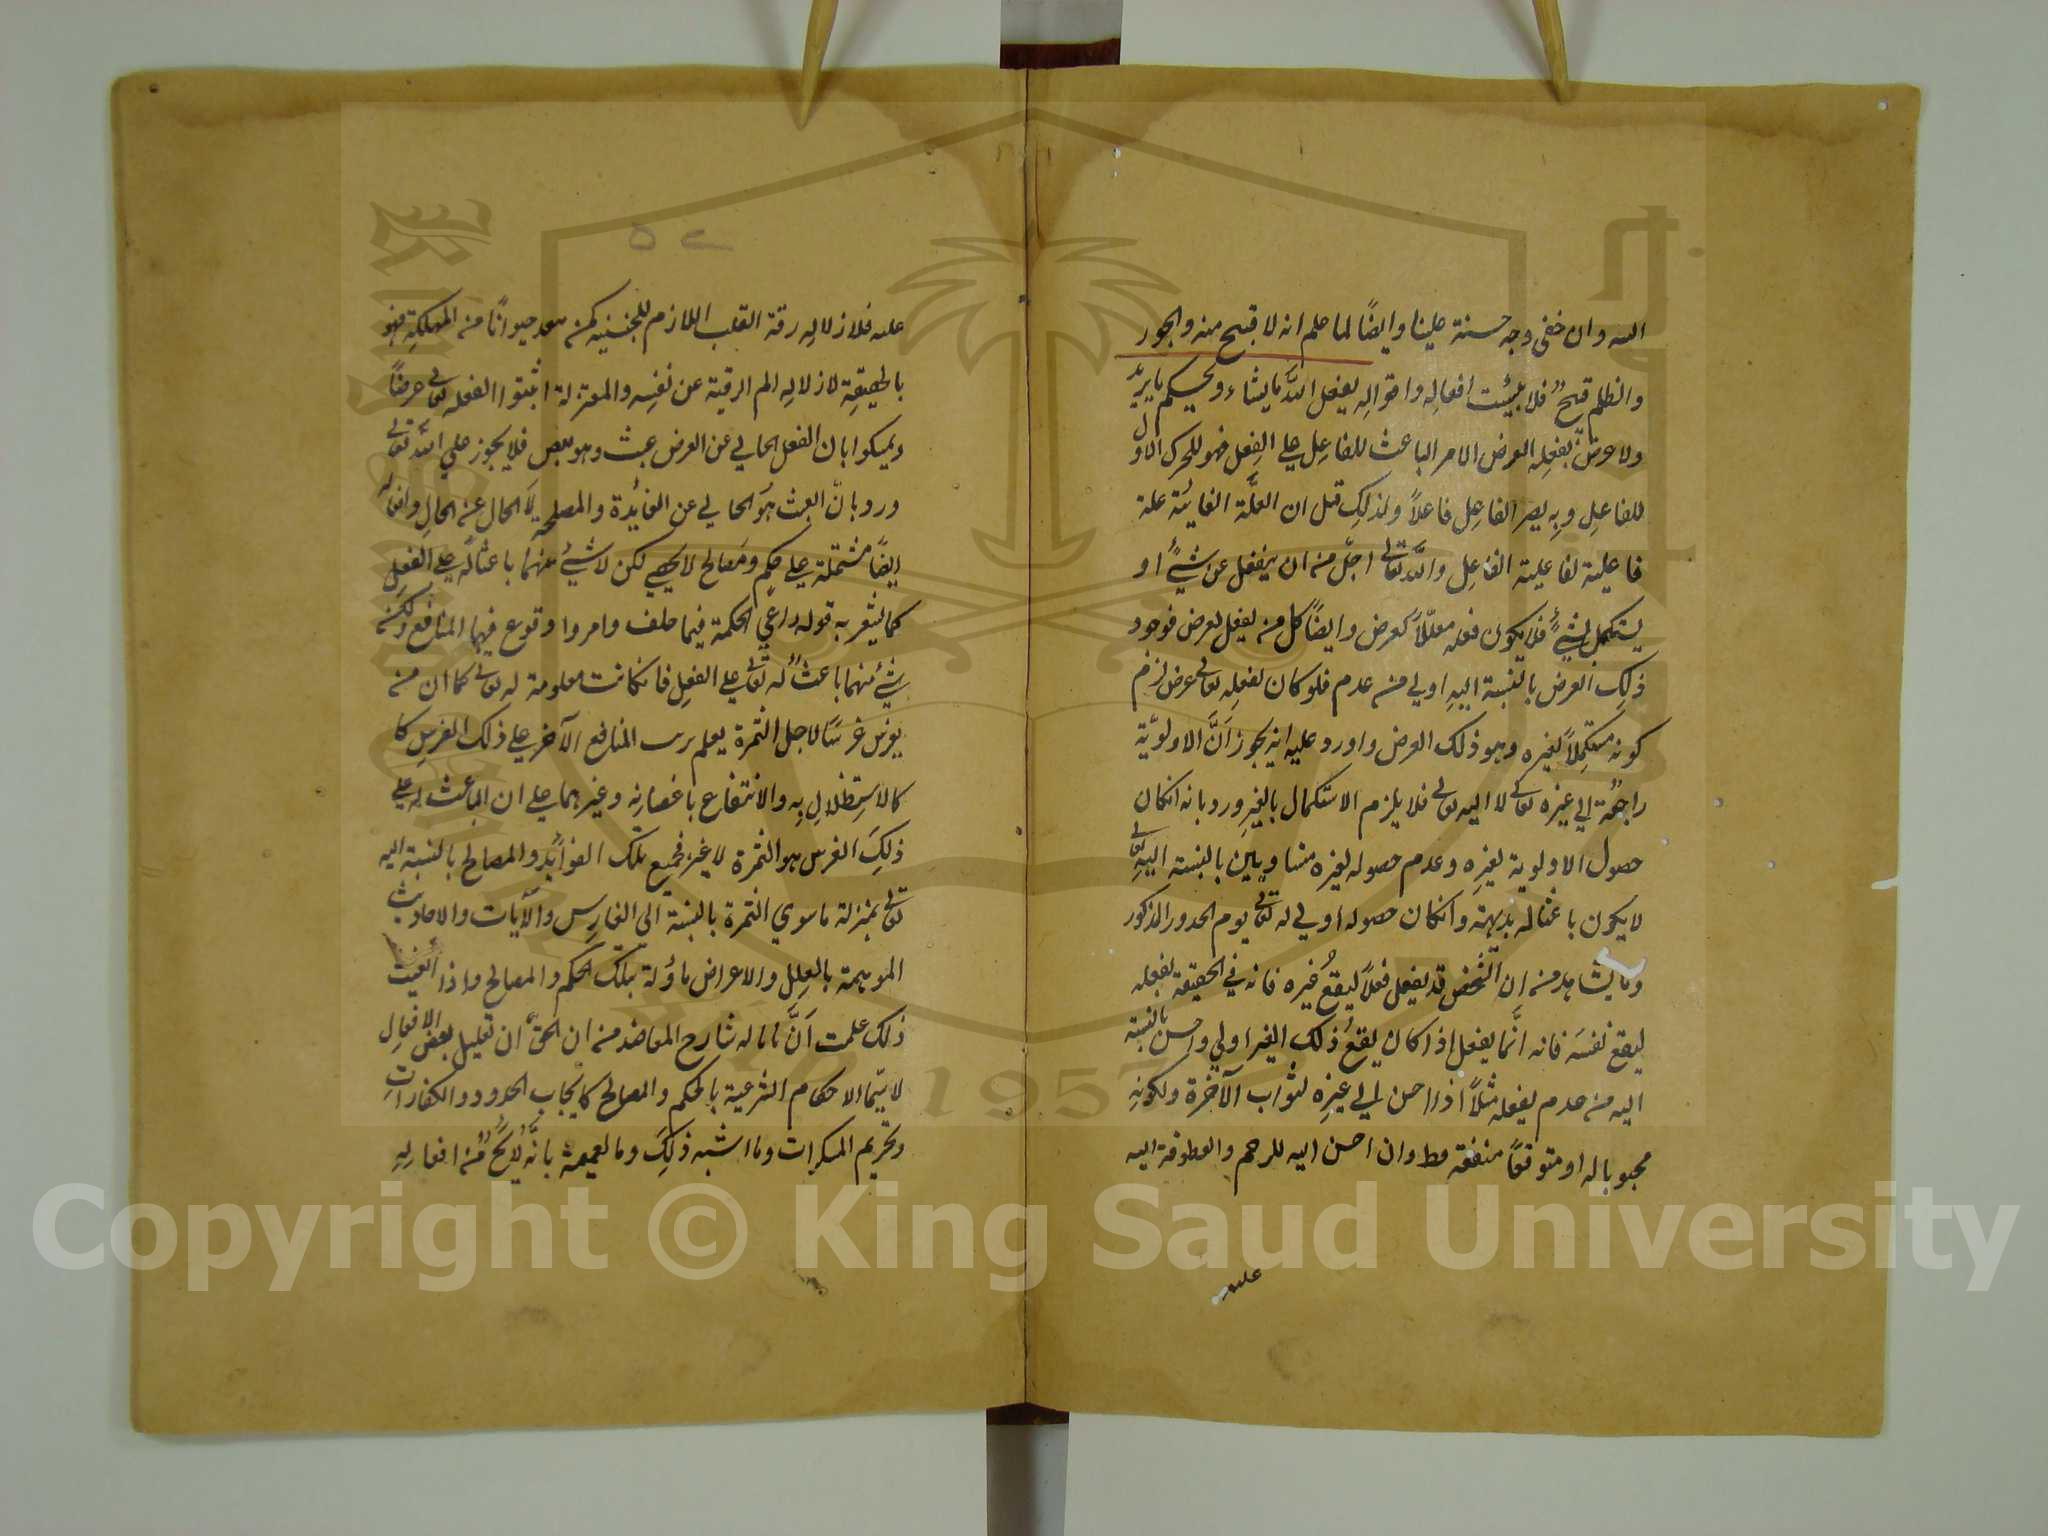 الله وان خفى وجه حسنة علينا وايضًا لما علم انه لا قبيح منه والجور
والظلم قبيح فلا ينسب افعاله واقواله يفعل الله ما يشاء ويحكم ما يريد
ولا عرض بفعله العرض الامر الباعث للفاعل على الفعل فهو للمحرك الاول
للفاعل وبه يصر الفاعل فاعلاً ولذلك قيل ان العلّة الغائية علة
فاعلية لفاعلية الفاعل والله تعالى اجلّ من ان ينفعل عن شئ او
يستكمل بشئ فلا يكون فعله معللاً كعرض وايضاً كل من يفعل لعرض فوجود
ذلك العرض بالنسبة اليه اولى من عدم فلو كان لفعله تعالى عرض لزم
كونه مستكملاً لغيره وهو ذلك العرض واورد عليه انه يجوز انّ الاولويّة
راجعة الى غيره تعالى لا اليه تعالى فلا يلزم الاستكمال بالغير ورد بانه انكان
حصول الاولوية لغيره وعدم حصوله لغيره متساويين بالنسبة اليه تعالى
لا يكون باعثا له بديهة وانكان حصوله اولى له تعالى يوم الحدور المذكور
وما يشاهد من ان الشخص قد يفعل فعلاً ليقع غيره فانه في الحقيقة يفعله
ليقع نفسه فانه انّما يفعل اذا كان يقع ذلك الغير اولى واحسن بالنسبة
اليه من عدم يفعله مثلاً اذا احسن الى غيره لثواب الآخرة ولكونه
محبوبا له او متوقعاً منفعة وط وان احسن اليه للرحم والعطوفة اليه
عليه
عليه فلازلاله رقة القلب اللازم للجنسية كمن حيوانًا من المهلكة فهو
بالحقيقة لازلاله الم الرقية عن نفسه والمعتزلة اثبتوا الفعله تعالى عرضًا
وتمسكوا بان الفعل الخالي عن العرض عبث وهو بعص فلا يجوز على الله تعالى
ورد بانّ العبث هو الخالي عن الفائدة والمصلحة لا الخال عن الحال وافعاله
ايضًا مشتملة على حكم ومصالح لا يحصى لكن لا شئ منهما باعثا له على الفعل
كما يشعر به قوله راعى الحكمة فيما خلف وامر وا وقوع فيهما المنافع ولكنه
شئ منهما باعث له تعالى على الفعل فانكانت معلومة له تعالى كما ان من
يغرس غرسًا لاجل الثمرة يعلم المنافع الآخر على ذلك الغرس كا
كالاستظلال به والانتفاع باغصانه وغيرهما على ان الباعث له على
ذلك الغرس هو الثمرة لا غير فجميع تلك الفوائد والمصالح بالنسبة اليه
تعالى بمنزلة ما سوي الثمرة بالنسبة الى الغارس والآيات والاحاديث
الموهمة بالعلل والاعراض ماؤلة بتلك الحكم والمصالح واذا
ذلك علمت انّ ما قاله شارح المقاصد من ان الحق ان تعليل بعض الافعال
لا سيّما الاحكام الشرعية بالحكم والمصالح كايجاب الحدود والكفارات
وتحريم المسكرات وما اشبه ذلك وما تعميمه بانّه لا يخ من افعاله
Copyright © King Saud University
1957